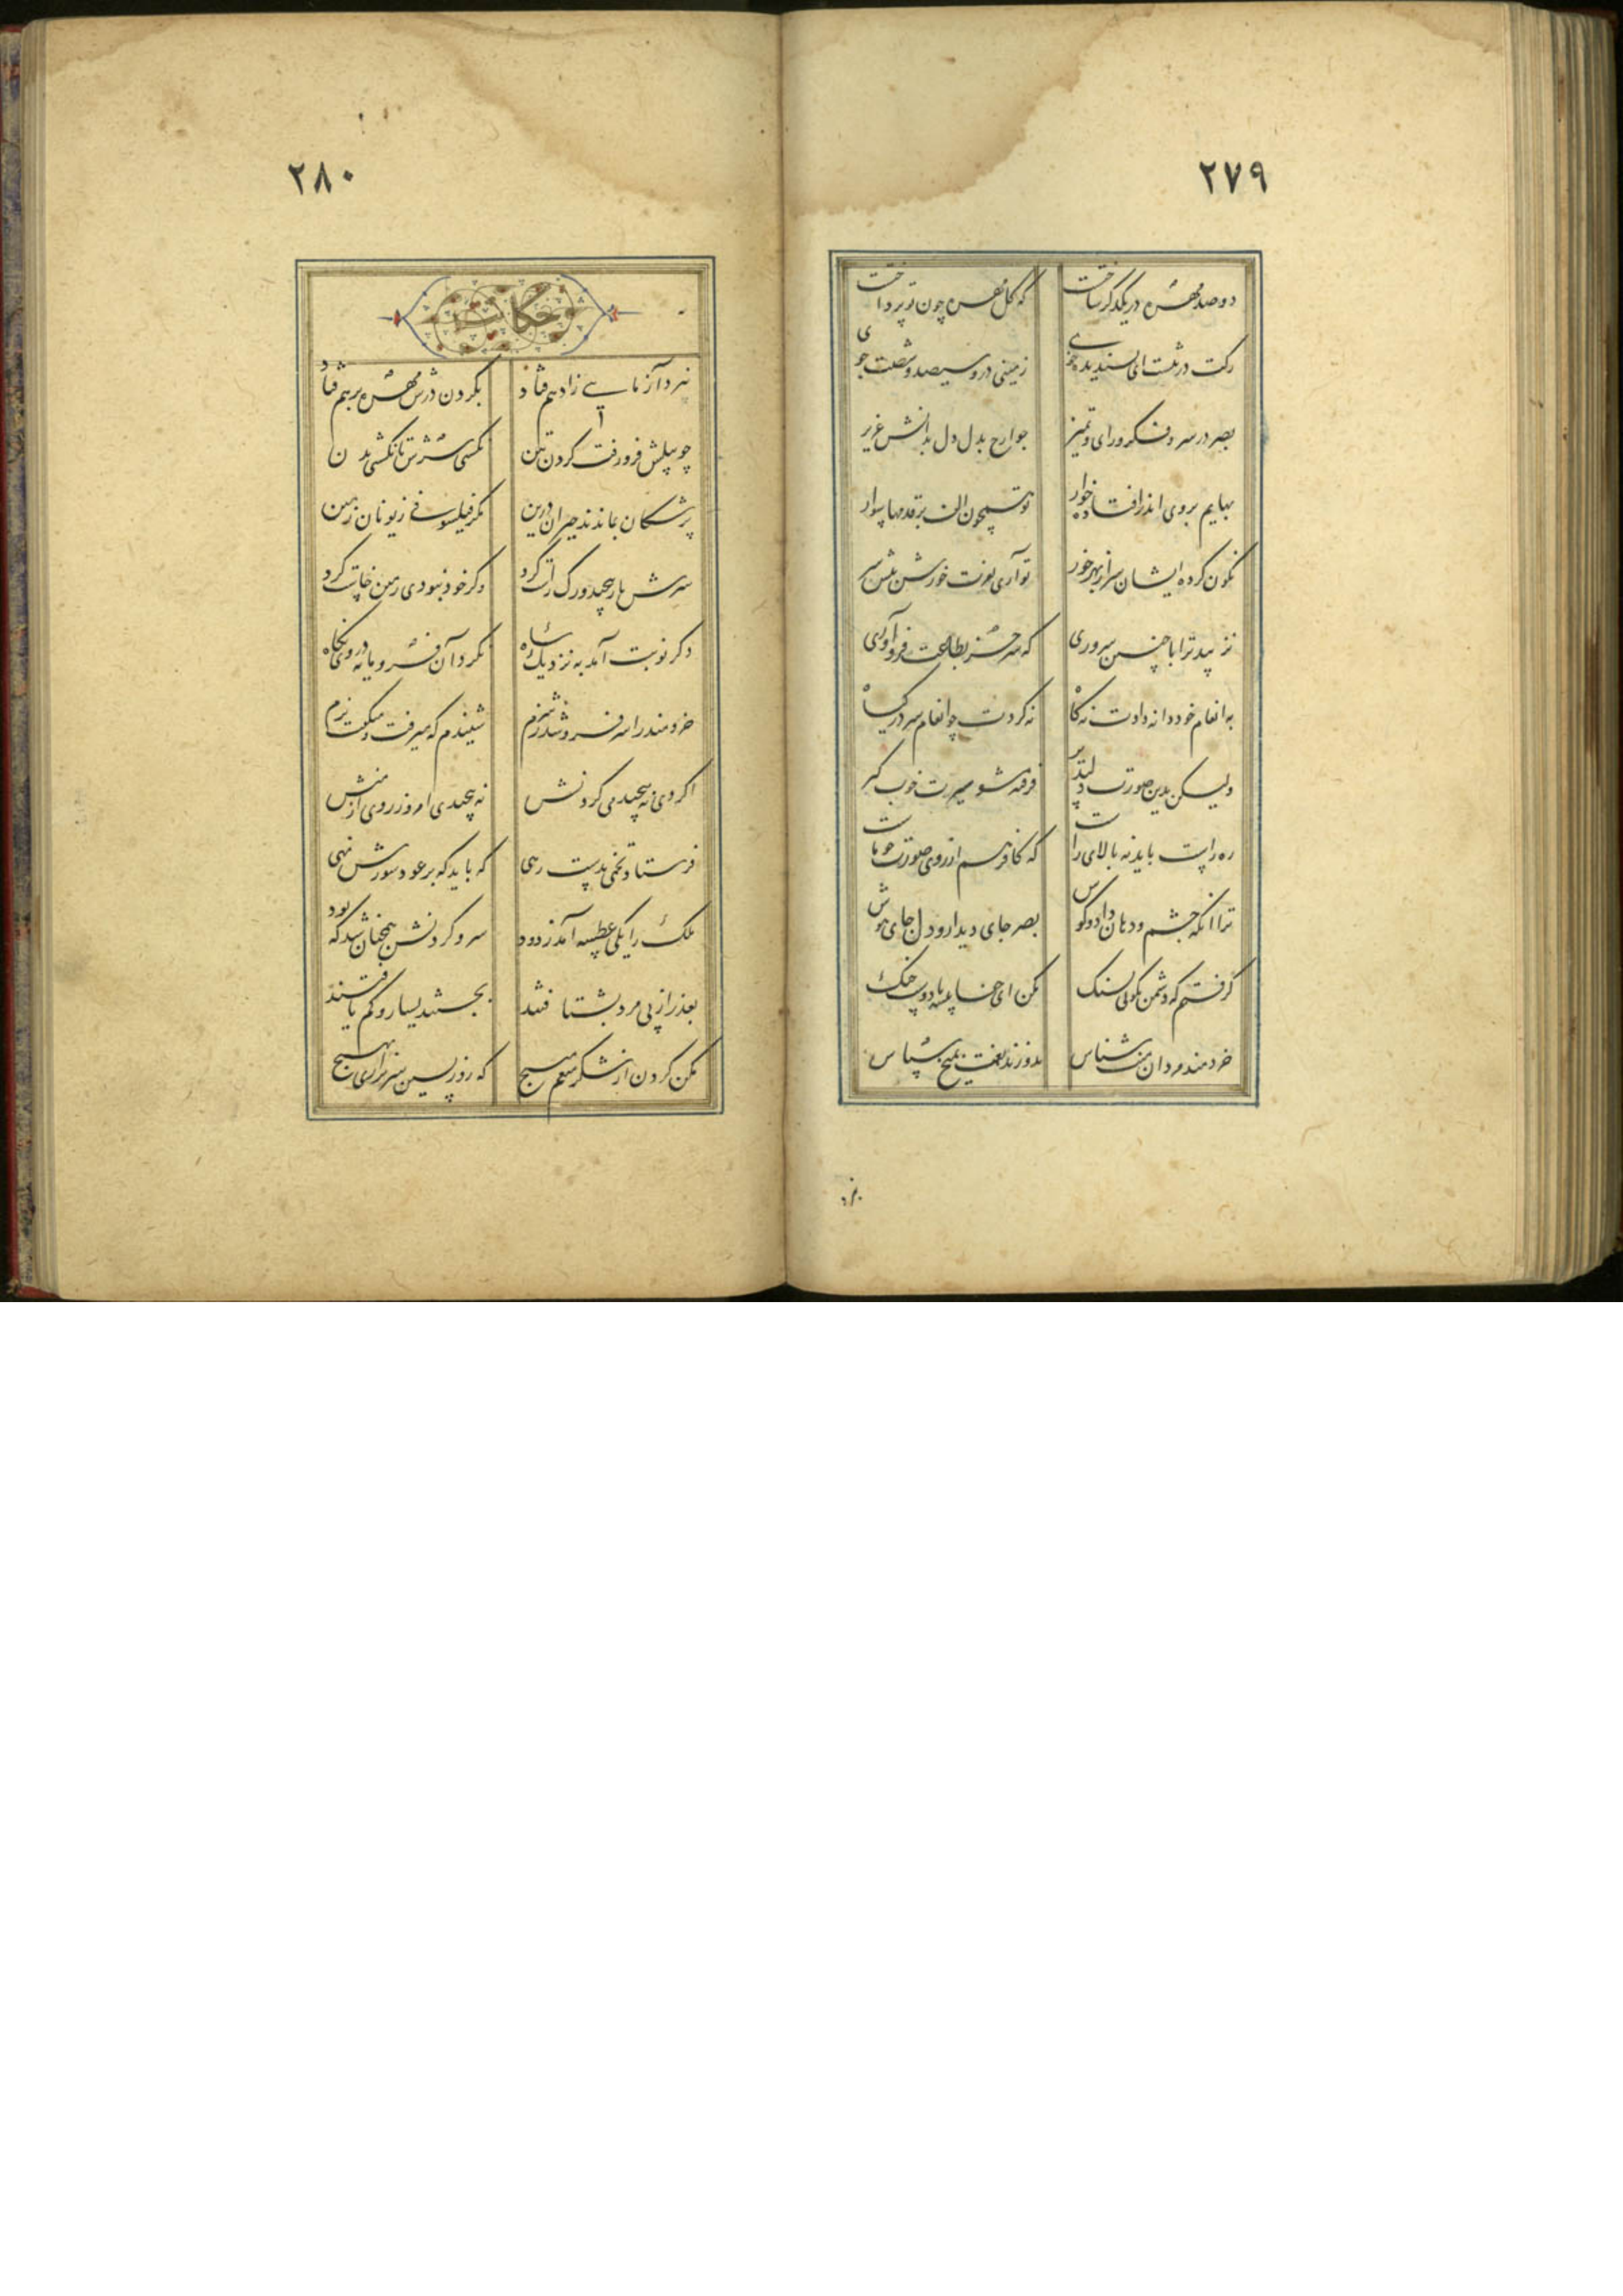 ۲۷۹
دو صد مهره در یکدگر ساخت که گل مهره چون تو پرداخت
رکت در تنست ای پسندیده خوی زمینی درو سیصد و شصت جوی
بصر در سر و فکر و رای و تمیز جوارح بدل دل بدانش عزیز
بهایم بروی اندر افتاده خوار تو همچون الف بر قدمها سوار
نگون کرده ایشان سر از بهر خور تو آری بعزت خورش پیش سر
نزیبد ترا با چنین سروری که سر جز بطاعت فرو آوری
به انعام خود دانه دادت نه کاه نکردت چو انعام سر در گیاه
ولیکن بدین صورت دلپذیر فرفته مشو سیرت خوب گیر
ره راست باید نه بالای راست که کافر هم از روی صورت چو ماست
ترا آنکه چشم و دهان داد و گوش بصر جای دیدار و دل جای هوش
گرفتم که دشمن بکوبی بسنگ مکن ای جفا پیشه با دوست جنگ
خردمند مردان منت شناس بدوزند نعمت بمیخ سپاس
۲۸۰
حکایت
نبرد آزمایی ز ادهم فتاد بگردن درش مهره برهم فتاد
چو پیلش فرو رفت گردن بتن نگشتی سرش تا نگشتی بدن
پزشکان بماندند حیران درین مگر فیلسوفی ز یونان زمین
سرش باز پیچید و رگ راست کرد وگر خود نبودی زمن خاست کرد
دگر نوبت آمد به نزدیک شاه نکرد آن فرومایه در وی نگاه
خردمند را سر فرو شد ز شرم شنیدم که میرفت و میگفت نرم
اگر دی نه پیچیدمی گردنش نه پیچیدی امروز روی از منش
فرستاد تخمی بدست رهی که باید که بر عود سوزش نهی
ملک را یکی عطسه آمد ز دود سر و گردنش همچنان شد که بود
بعذر از پی مرد بشتافتند بجستند بسیار و کم یافتند
مکن گردن از شکر منعم مپیچ که روز پسین سر برآری بهیچ